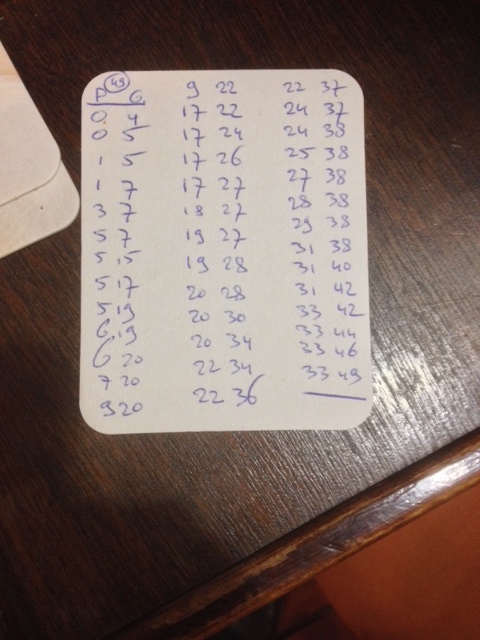 P 49 G
0 4
0 5
1 5
1 7
3 7
5 7
5 15
5 17
5 19
6 19
6 20
7 20
9 20
9 22
17 22
17 24
17 26
17 27
18 27
19 27
19 28
20 28
20 30
20 34
22 34
22 36
22 37
24 37
24 38
25 38
27 38
28 38
29 38
31 38
31 40
31 42
33 42
33 44
33 46
33 49